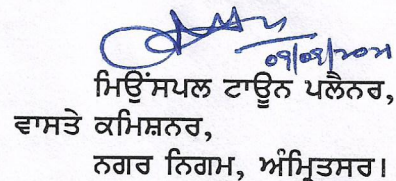 09/09/2021
ਮਿਉਂਸਪਲ ਟਾਊਨ ਪਲੈਨਰ,
ਵਾਸਤੇ ਕਮਿਸ਼ਨਰ,
ਨਗਰ ਨਿਗਮ, ਅੰਮ੍ਰਿਤਸਰ।